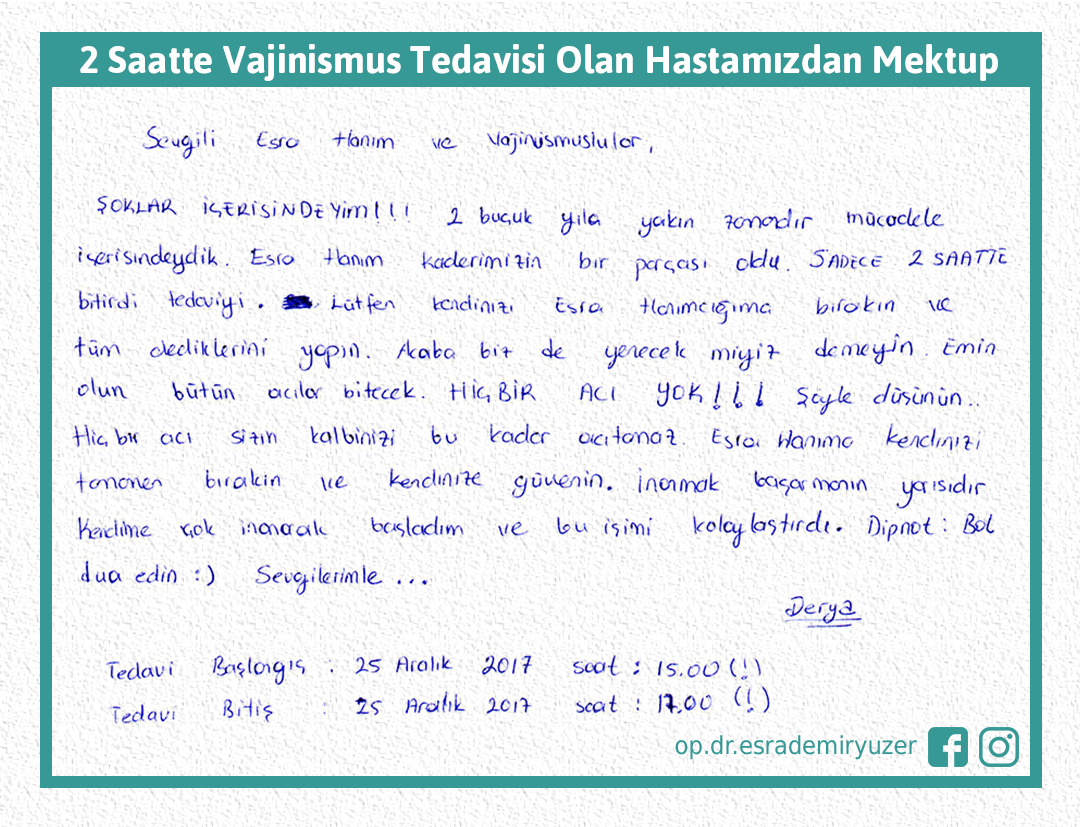 2 Saatte Vajinismus Tedavisi Olan Hastamızdan Mektup
Sevgili Esra Hanım ve Vajinismuslular,
ŞOKLAR İÇERİSİNDEYİM!!! 2 buçuk yıla yakın zamandır mücadele
içerisindeydik. Esra Hanım kaderimizin bir parçası oldu. SADECE 2 SAATTE
bitirdi tedaviyi. Lütfen kendinizi Esra Hanımcığıma bırakın ve
tüm dediklerini yapın. Acaba biz de yenecek miyiz demeyin. Emin
olun bütün acılar bitecek. HİÇ BİR ACI YOK!!! Şöyle düşünün..
Hiç bir acı sizin kalbinizi bu kadar acıtamaz. Esra Hanıma kendinizi
tamamen bırakın ve kendinize güvenin. İnanmak başarmanın yarısıdır
Kendime çok inanarak başladım ve bu işimi kolaylaştırdı. Dipnot: Bol
dua edin :) Sevgilerimle ...
Derya
Tedavi Başlangıç : 25 Aralık 2017 saat : 15.00 (!)
Tedavi Bitiş : 25 Aralık 2017 saat : 17.00 (!)
op.dr.esrademiryuzer